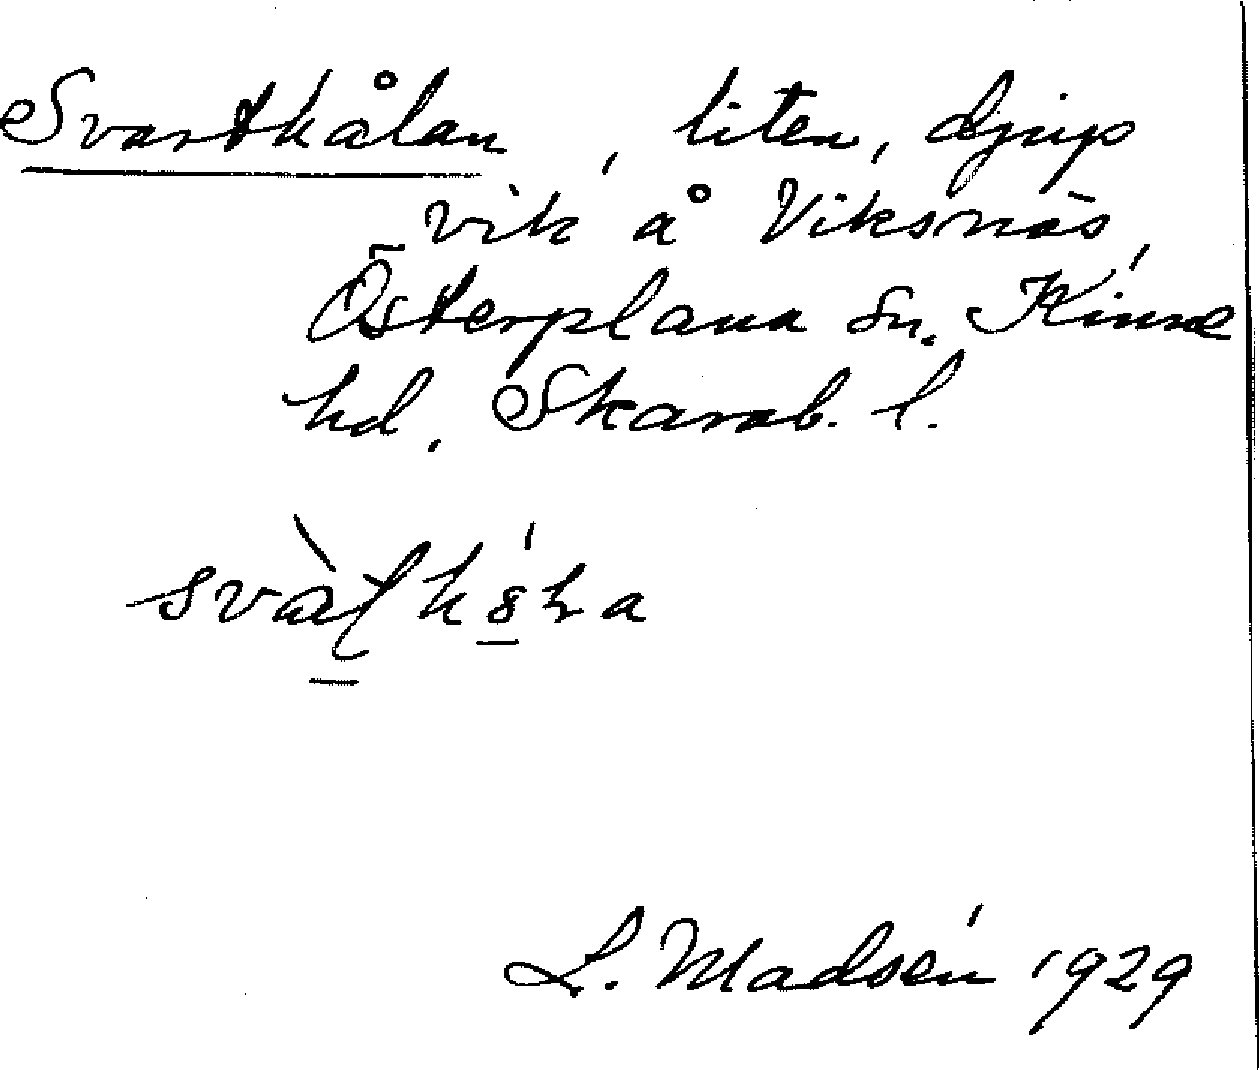 Svartkålan, liten, djup
vik å Viksnäs,
Österplana sn. Kinne
hd. Skarab. l.
L. Madsén 1929